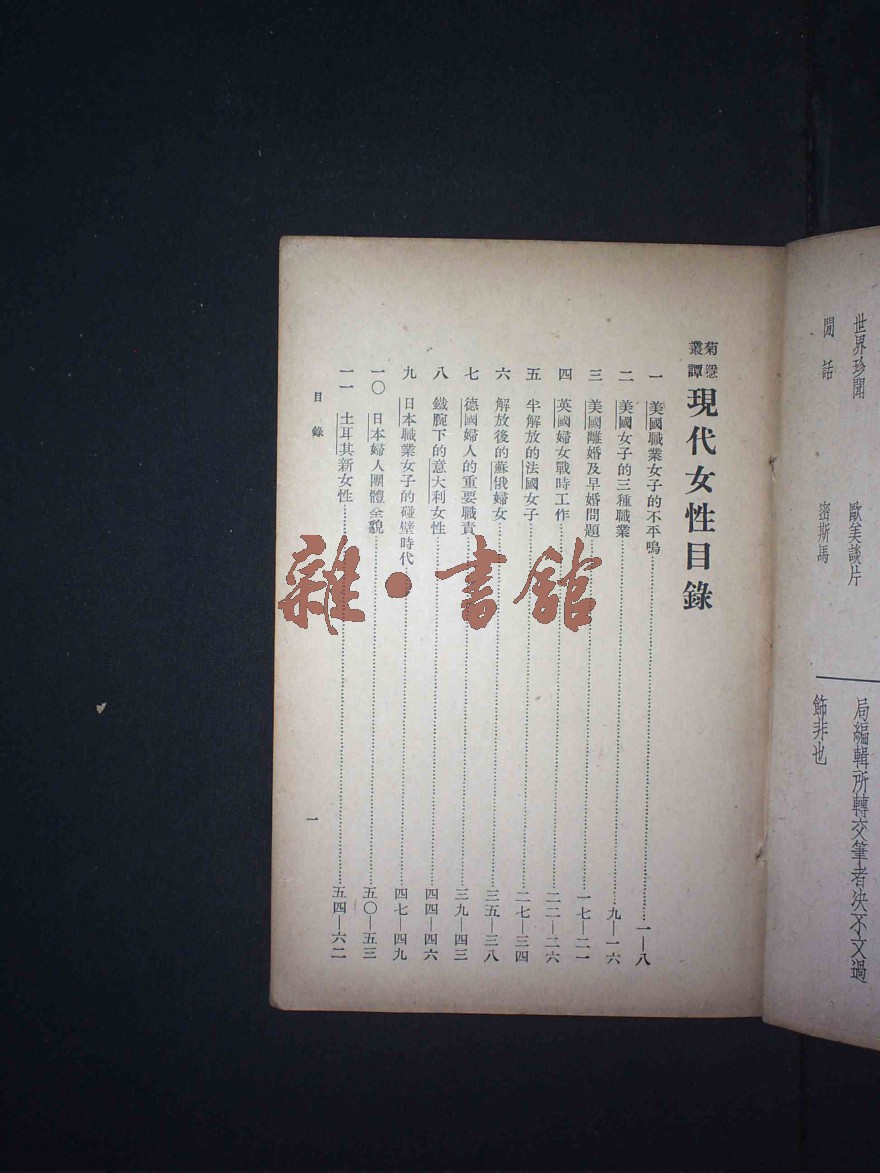 世界珍聞
歐美談片
局編輯所轉交筆者決不文過
閒話
密斯馬
飾非也
菊隱
叢譚
現代女性目錄
一 美國職業女子的不平鳴……一—八
二 美國女子的三種職業……九—一六
三 美國離婚及早婚問題……一七—二一
四 英國婦女戰時工作……二二—二六
五 半解放的法國女子……二七—三四
六 解放後的蘇俄婦女……三五—三八
七 德國婦人的重要職責……三九—四三
八 鐵腕下的意大利女性……四四—四六
九 日本職業女子的碰壁時代……四七—四九
一〇 日本婦人團體全貌……五〇—五三
一一 土耳其新女性……五四—六二
目錄
一
雜·書館